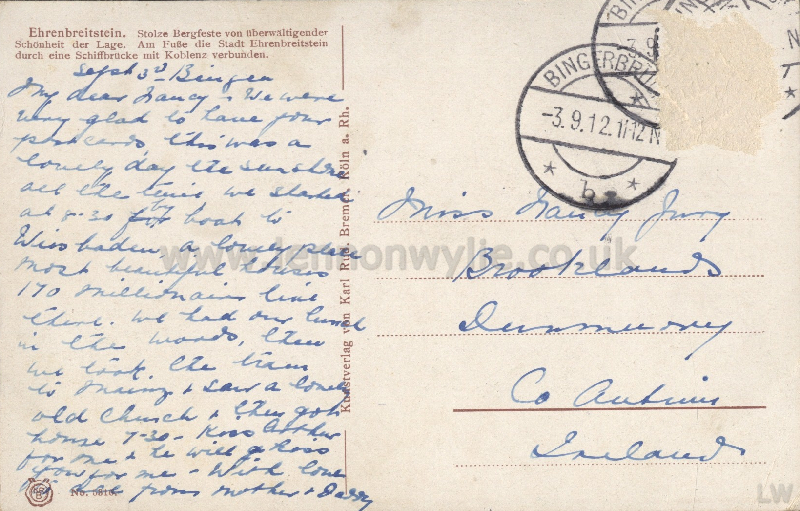 Ehrenbreitstein. Stolze Bergfeste von überwältigender
Schönheit der Lage. Am Fuße die Stadt Ehrenbreitstein
durch eine Schiffbrücke mit Koblenz verbunden.
Sept 3rd Bingen
My dear Nancy. We were
very glad to have your
postcards, this was a
lovely day the sunshine
all the time we started
at 8-30 by boat to
Wiesbaden, a lovely place
most beautiful houses
170 millionaires live
there. We had our lunch
in the woods, then
we took the tram
to Mainz & saw a lovely
old Church & then got
home 7-30 - Kiss Arthur
for me & he will kiss
you for me - With love
from Mother & Daddy
No. 5816.
Kunstverlag von Karl Rud. Bremer, Köln a. Rh.
BINGERBRÜCK
-3.9.12.11-12N
* b *
Miss Nancy Jury
Brooklands
Dunmurry
Co Antrim
Ireland
www.lennonwylie.co.uk
LW